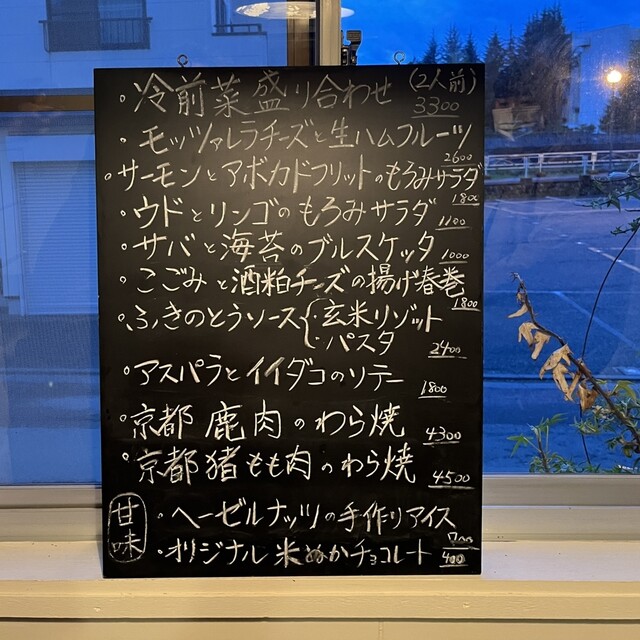 ・冷前菜盛り合わせ(2人前)
3300
・モッツァレラチーズと生ハムフルーツ
2600
・サーモンとアボカドフリットのもろみサラダ
1800
・ウドとリンゴのもろみサラダ 1100
・サバと海苔のブルスケッタ 1000
・こごみと酒粕チーズの揚げ春巻
1800
・ふきのとうソース{・玄米リゾット
・パスタ
2400
・アスパラとイイダコのソテー
1800
・京都鹿肉のわら焼 4300
・京都猪もも肉のわら焼
4500
甘味
・ヘーゼルナッツの手作りアイス
700
・オリジナル米ぬかチョコレート 400